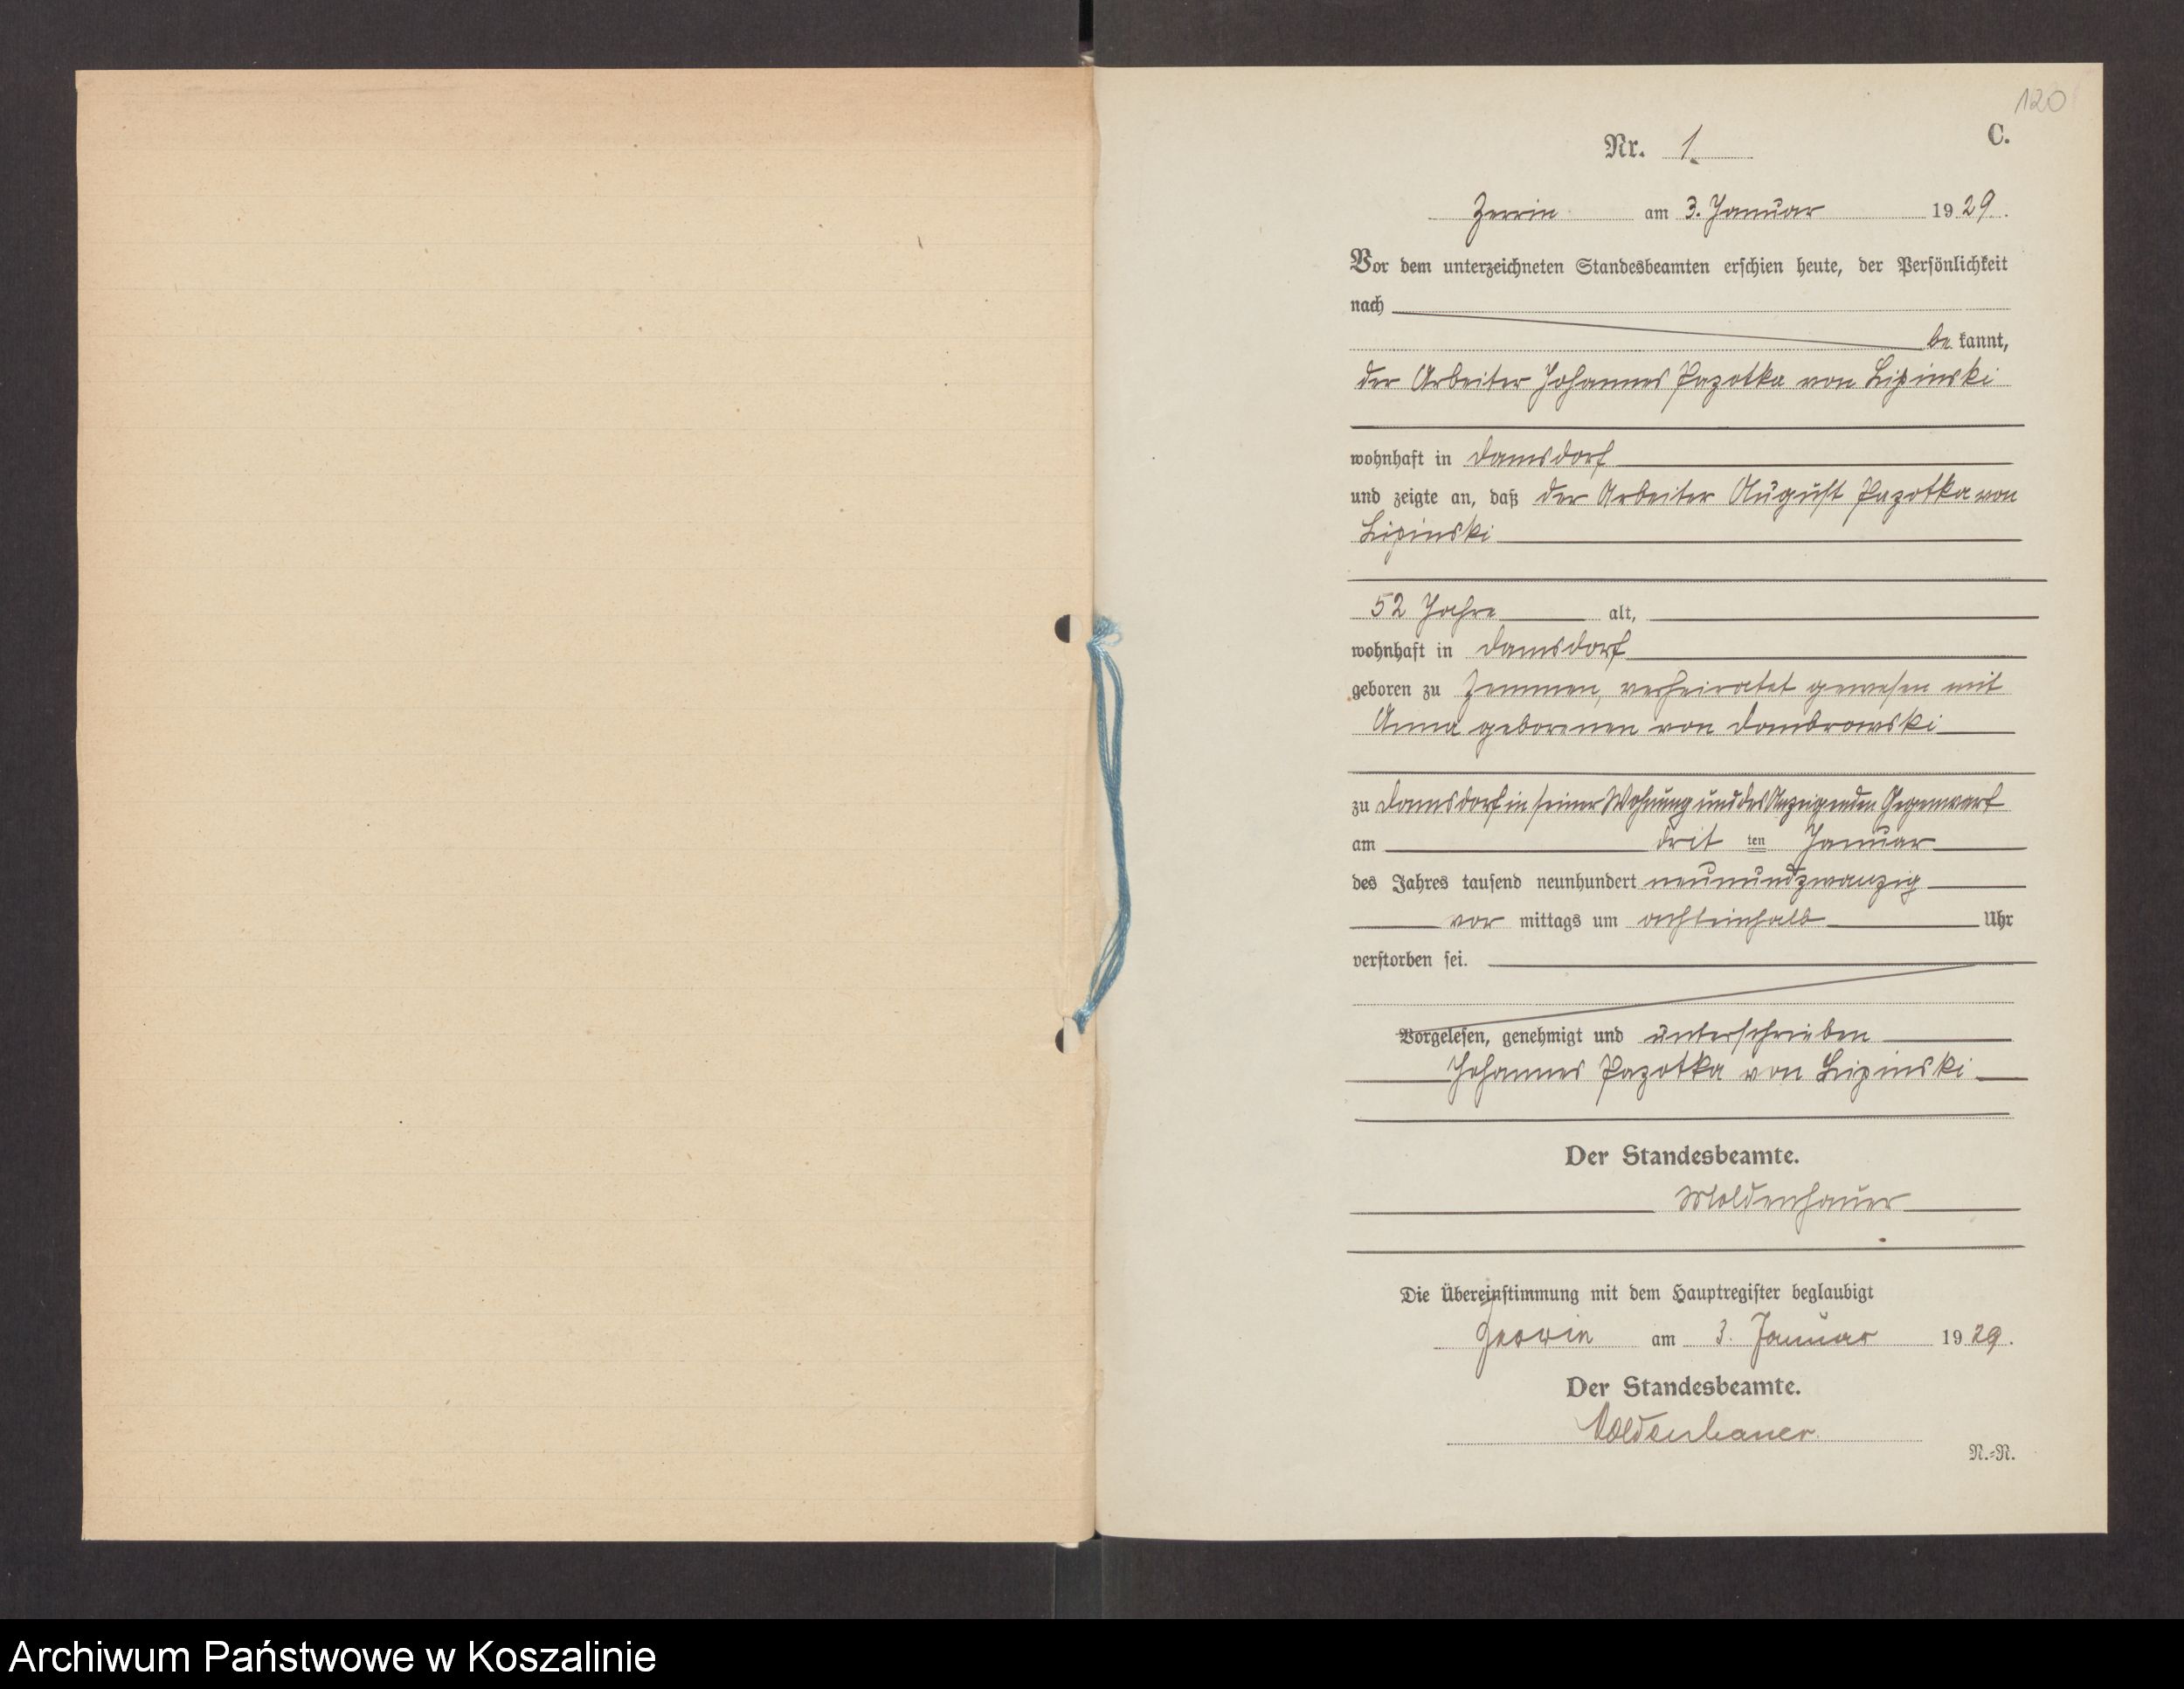 120
C.
Nr. 1.
Zerrin am 3. Januar 1929.
Vor dem unterzeichneten Standesbeamten erschien heute, der Persönlichkeit
nach
be kannt,
der Arbeiter Johannes Pazotka von Lipinski
wohnhaft in Damsdorf
und zeigte an, daß der Arbeiter August Pazotka von
Lipinski
52 Jahre alt,
wohnhaft in Damsdorf
geboren zu Zemmen, verheiratet gewesen mit
Anna geborenen von Dombrowski
zu Damsdorf in seiner Wohnung und des Anzeigenden Gegenwart
am drit ten Januar
des Jahres tausend neunhundert neunundzwanzig
vor mittags um achteinhalb Uhr
verstorben sei.
Vorgelesen, genehmigt und unterschrieben
Johannes Pazotka von Lipinski
Der Standesbeamte.
Moldenhauer
Die Übereinstimmung mit dem Hauptregister beglaubigt
Zerrin am 3. Januar 1929.
Der Standesbeamte.
Moldenhauer.
N.=R.
Archiwum Państwowe w Koszalinie